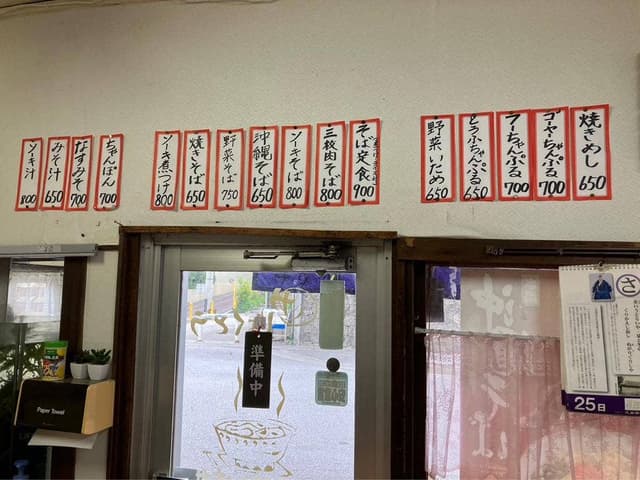 焼きめし 650
ゴーヤーちゃんぷる 700
フーちゃんぷる 700
とうふちゃんぷる 650
野菜いため 650
そば定食 900
三枚肉そば 800
ソーキそば 800
沖縄そば 650
野菜そば 750
焼きそば 650
ソーキ煮つけ 800
ちゃんぽん 700
なすみそ 700
みそ汁 650
ソーキ汁 800
準備中
沖縄そば
Paper Towel
さ
25日